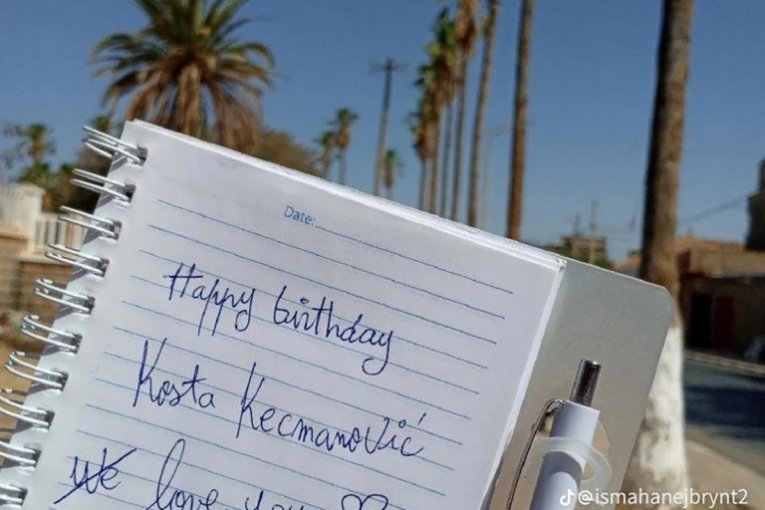 Date:
Happy birthday
Kosta Kecmanović
We love you ♡
@ismahanejbrynt2